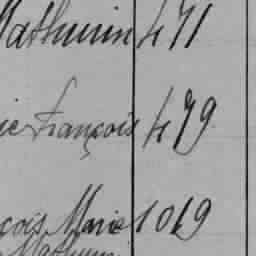 Mathurin 471
ie François 479
çois Marie 1069
Mathurin